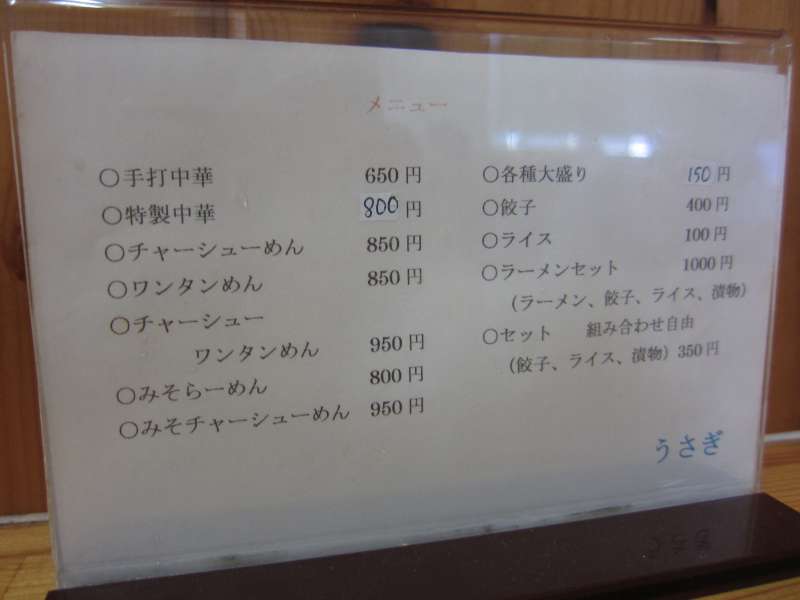 メニュー
○手打中華 650円
○特製中華 800円
○チャーシューめん 850円
○ワンタンめん 850円
○チャーシュー
ワンタンめん 950円
○みそらーめん 800円
○みそチャーシューめん 950円
○各種大盛り 150円
○餃子 400円
○ライス 100円
○ラーメンセット 1000円
(ラーメン、餃子、ライス、漬物)
○セット 組み合わせ自由
(餃子、ライス、漬物) 350円
うさぎ